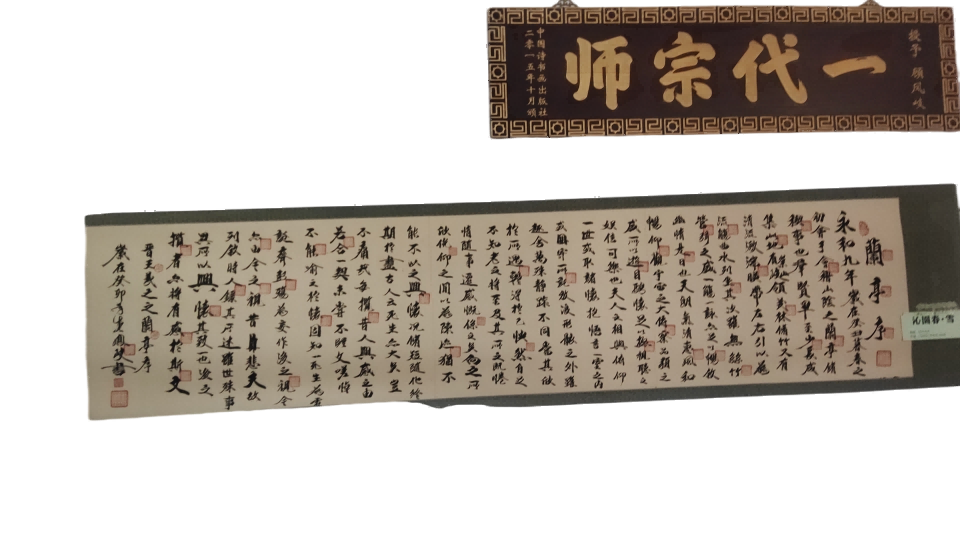 授予 顾风岐
一代宗师
中国诗书画出版社
二零一五年十月颁
蘭亭序
永和九年歲在癸丑暮春之
初會于會稽山陰之蘭亭脩
禊事也群賢畢至少長咸
集此地有崇山峻領茂林脩竹又有
清流激湍暎帶左右引以為
流觴曲水列坐其次雖無絲竹
管絃之盛一觴一詠亦足以暢敘
幽情是日也天朗氣清惠風和
暢仰觀宇宙之大俯察品類之
盛所以遊目騁懷足以極視聽之
娛信可樂也夫人之相與俯仰
一世或取諸懷抱悟言一室之內
或因寄所託放浪形骸之外雖
趣舍萬殊靜躁不同當其欣
於所遇暫得於己快然自足
不知老之將至及其所之既惓
情隨事遷感慨係之矣向之所
欣俛仰之間以為陳迹猶不
能不以之興懷況脩短隨化終
期於盡古人云死生亦大矣豈
不痛哉每攬昔人興感之由
若合一契未嘗不臨文嗟悼
不能喻之於懷固知一死生為虛
誕齊彭殤為妄作後之視今
亦由今之視昔悲夫故
列敘時人錄其所述雖世殊事
異所以興懷其致一也後之
攬者亦將有感於斯文
晉王羲之之蘭亭序
歲在癸卯冬
沁園春·雪